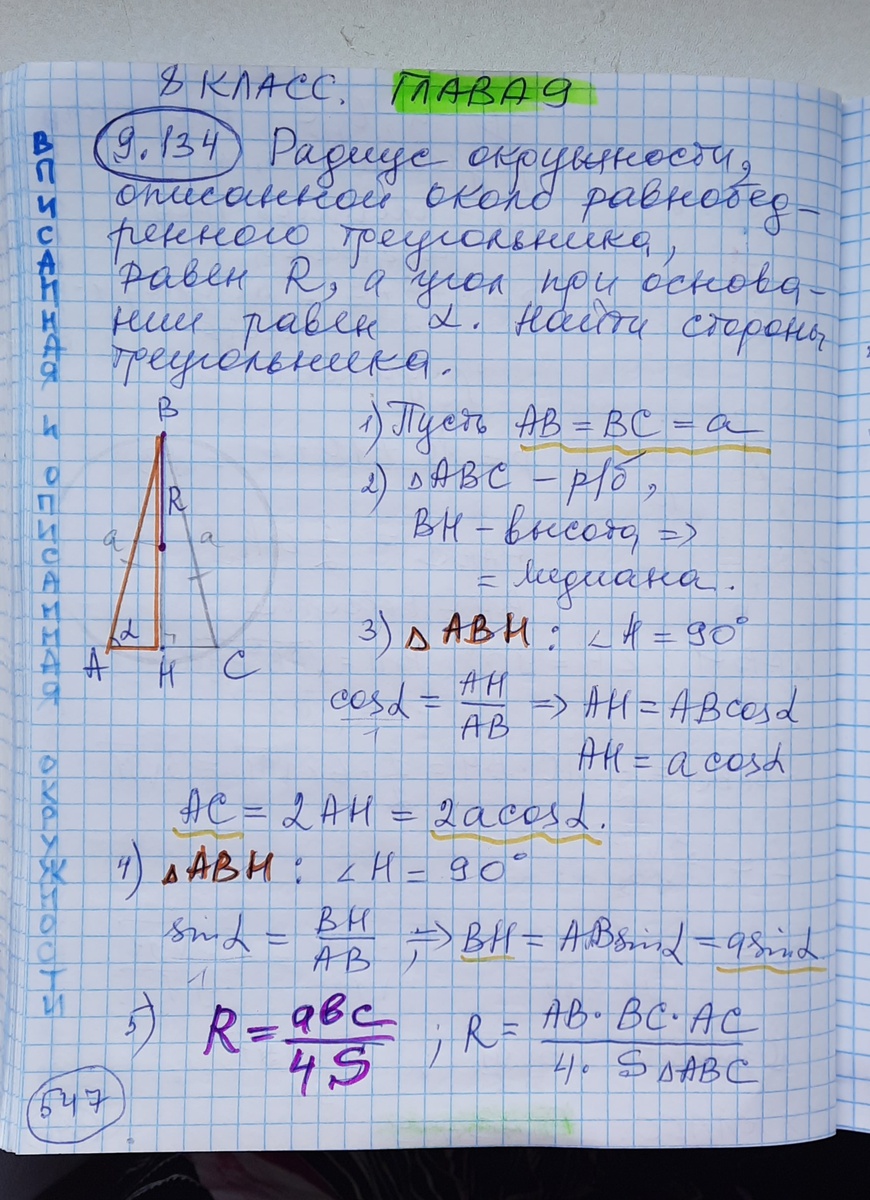 8 КЛАСС. ГЛАВА 9
ВПИСАННАЯ И ОПИСАННАЯ ОКРУЖНОСТИ
9.134 Радиус окружности,
описанной около равнобед-
ренного треугольника,
равен R, а угол при основа-
нии равен α. Найти стороны
треугольника.
B
R
a a
α
A H C
1) Пусть AB = BC = a
2) △ABC – р/б,
BH – высота =>
= медиана.
3) △ABH : ∠H = 90°
cosα = AH/AB => AH = ABcosα
AH = a cosα
AC = 2AH = 2acosα.
4) △ABH : ∠H = 90°
sinα = BH/AB ; => BH = ABsinα = asinα
5) R = abc/4S ; R = AB · BC · AC/4 · S△ABC
547